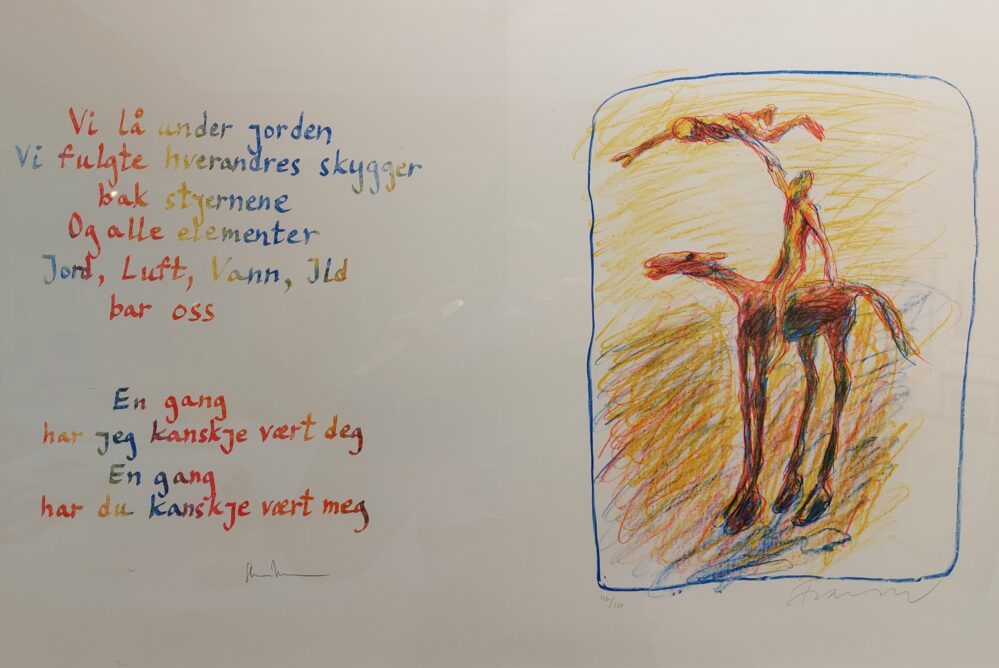 Vi lå under jorden
Vi fulgte hverandres skygger
bak stjernene
Og alle elementer
Jord, Luft, Vann, Ild
bar oss
En gang
har jeg kanskje vært deg
En gang
har du kanskje vært meg